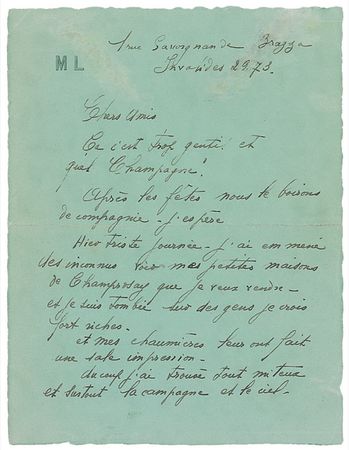 1 rue Savorgnan de Brazza
ML
29.73.
Chers Amis
Ce c'est trop gentil et
quel Champagne!
Après les fêtes nous le boirons
de compagnie - j'espère
Hier triste journée - j'ai emmené
des inconnus voir mes petites maisons
de Champrosay que je veux vendre -
et je suis tombée sur des gens je crois
fort riches -
et mes chaumières leur ont fait
une sale impression -
du coup j'ai trouvé tout miteux
et surtout la campagne et le ciel -